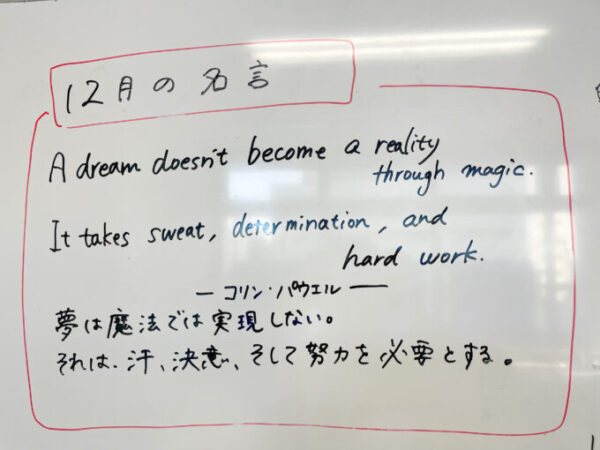 12月の名言
A dream doesn't become a reality
through magic.
It takes sweat, determination, and
hard work.
— コリン・パウエル —
夢は魔法では実現しない。
それは、汗、決意、そして努力を必要とする。